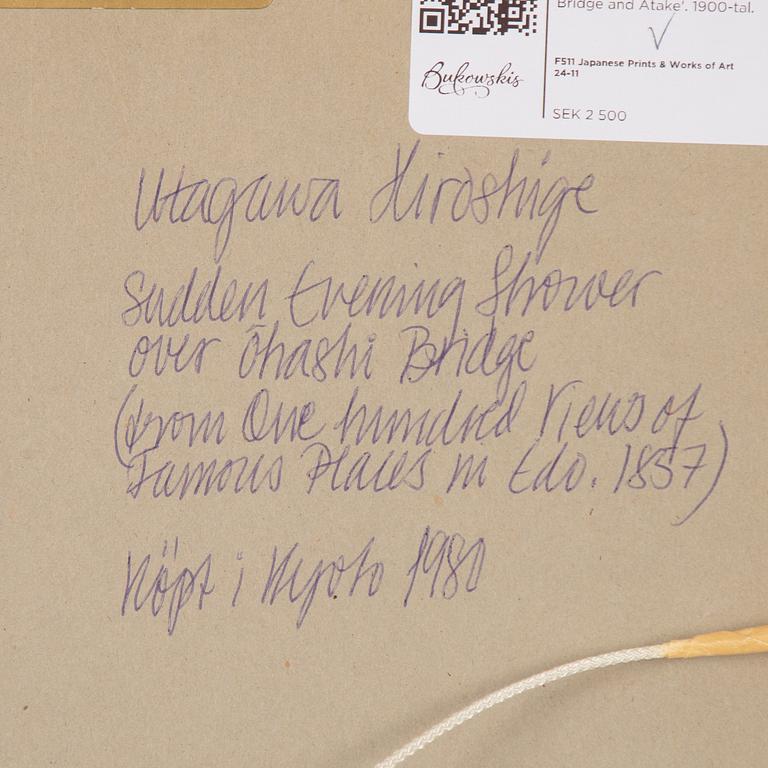 Bridge and Atake'. 1900-tal.
Bukowskis
F511 Japanese Prints & Works of Art
24-11
SEK 2 500
Utagawa Hiroshige
Sudden Evening Shower
over Ōhashi Bridge
(from One hundred Views of
Famous Places in Edo. 1857)
Köpt i Kyoto 1980